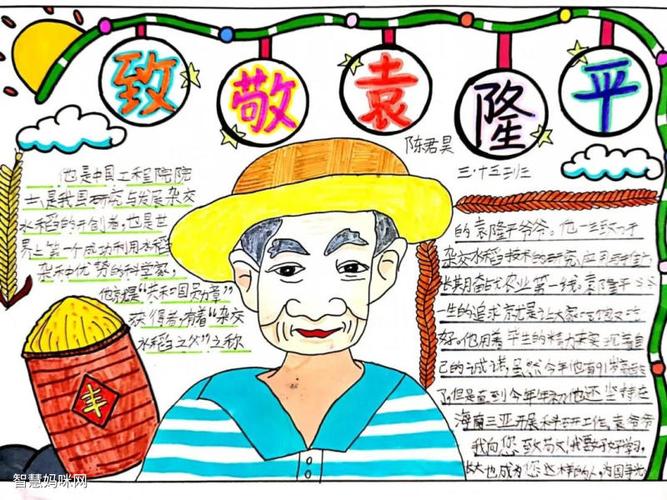 致敬袁隆平
陈君昊
三·十五班
他是中国工程院院
士,是我国研究与发展杂交
水稻的开创者,也是世
界上第一个成功利用水稻
杂种优势的科学家,
他就是“共和国勋章”
获得者,有着“杂交
水稻之父”之称
的袁隆平爷爷。他一生致力于
杂交水稻技术的研究、应用与推广
长期奋战农业第一线。袁隆平爷爷
一生的追求就是让大家
好。他用着平生的精力来实现着自
己的诺,虽然今年他有91岁高龄
了但是直到今年年初他还坚持在
海南三亚开展科研工作。袁爷爷
我向您致敬!我要好好学习,
长大也成为您这样的人,为国争光
丰
智慧妈咪网